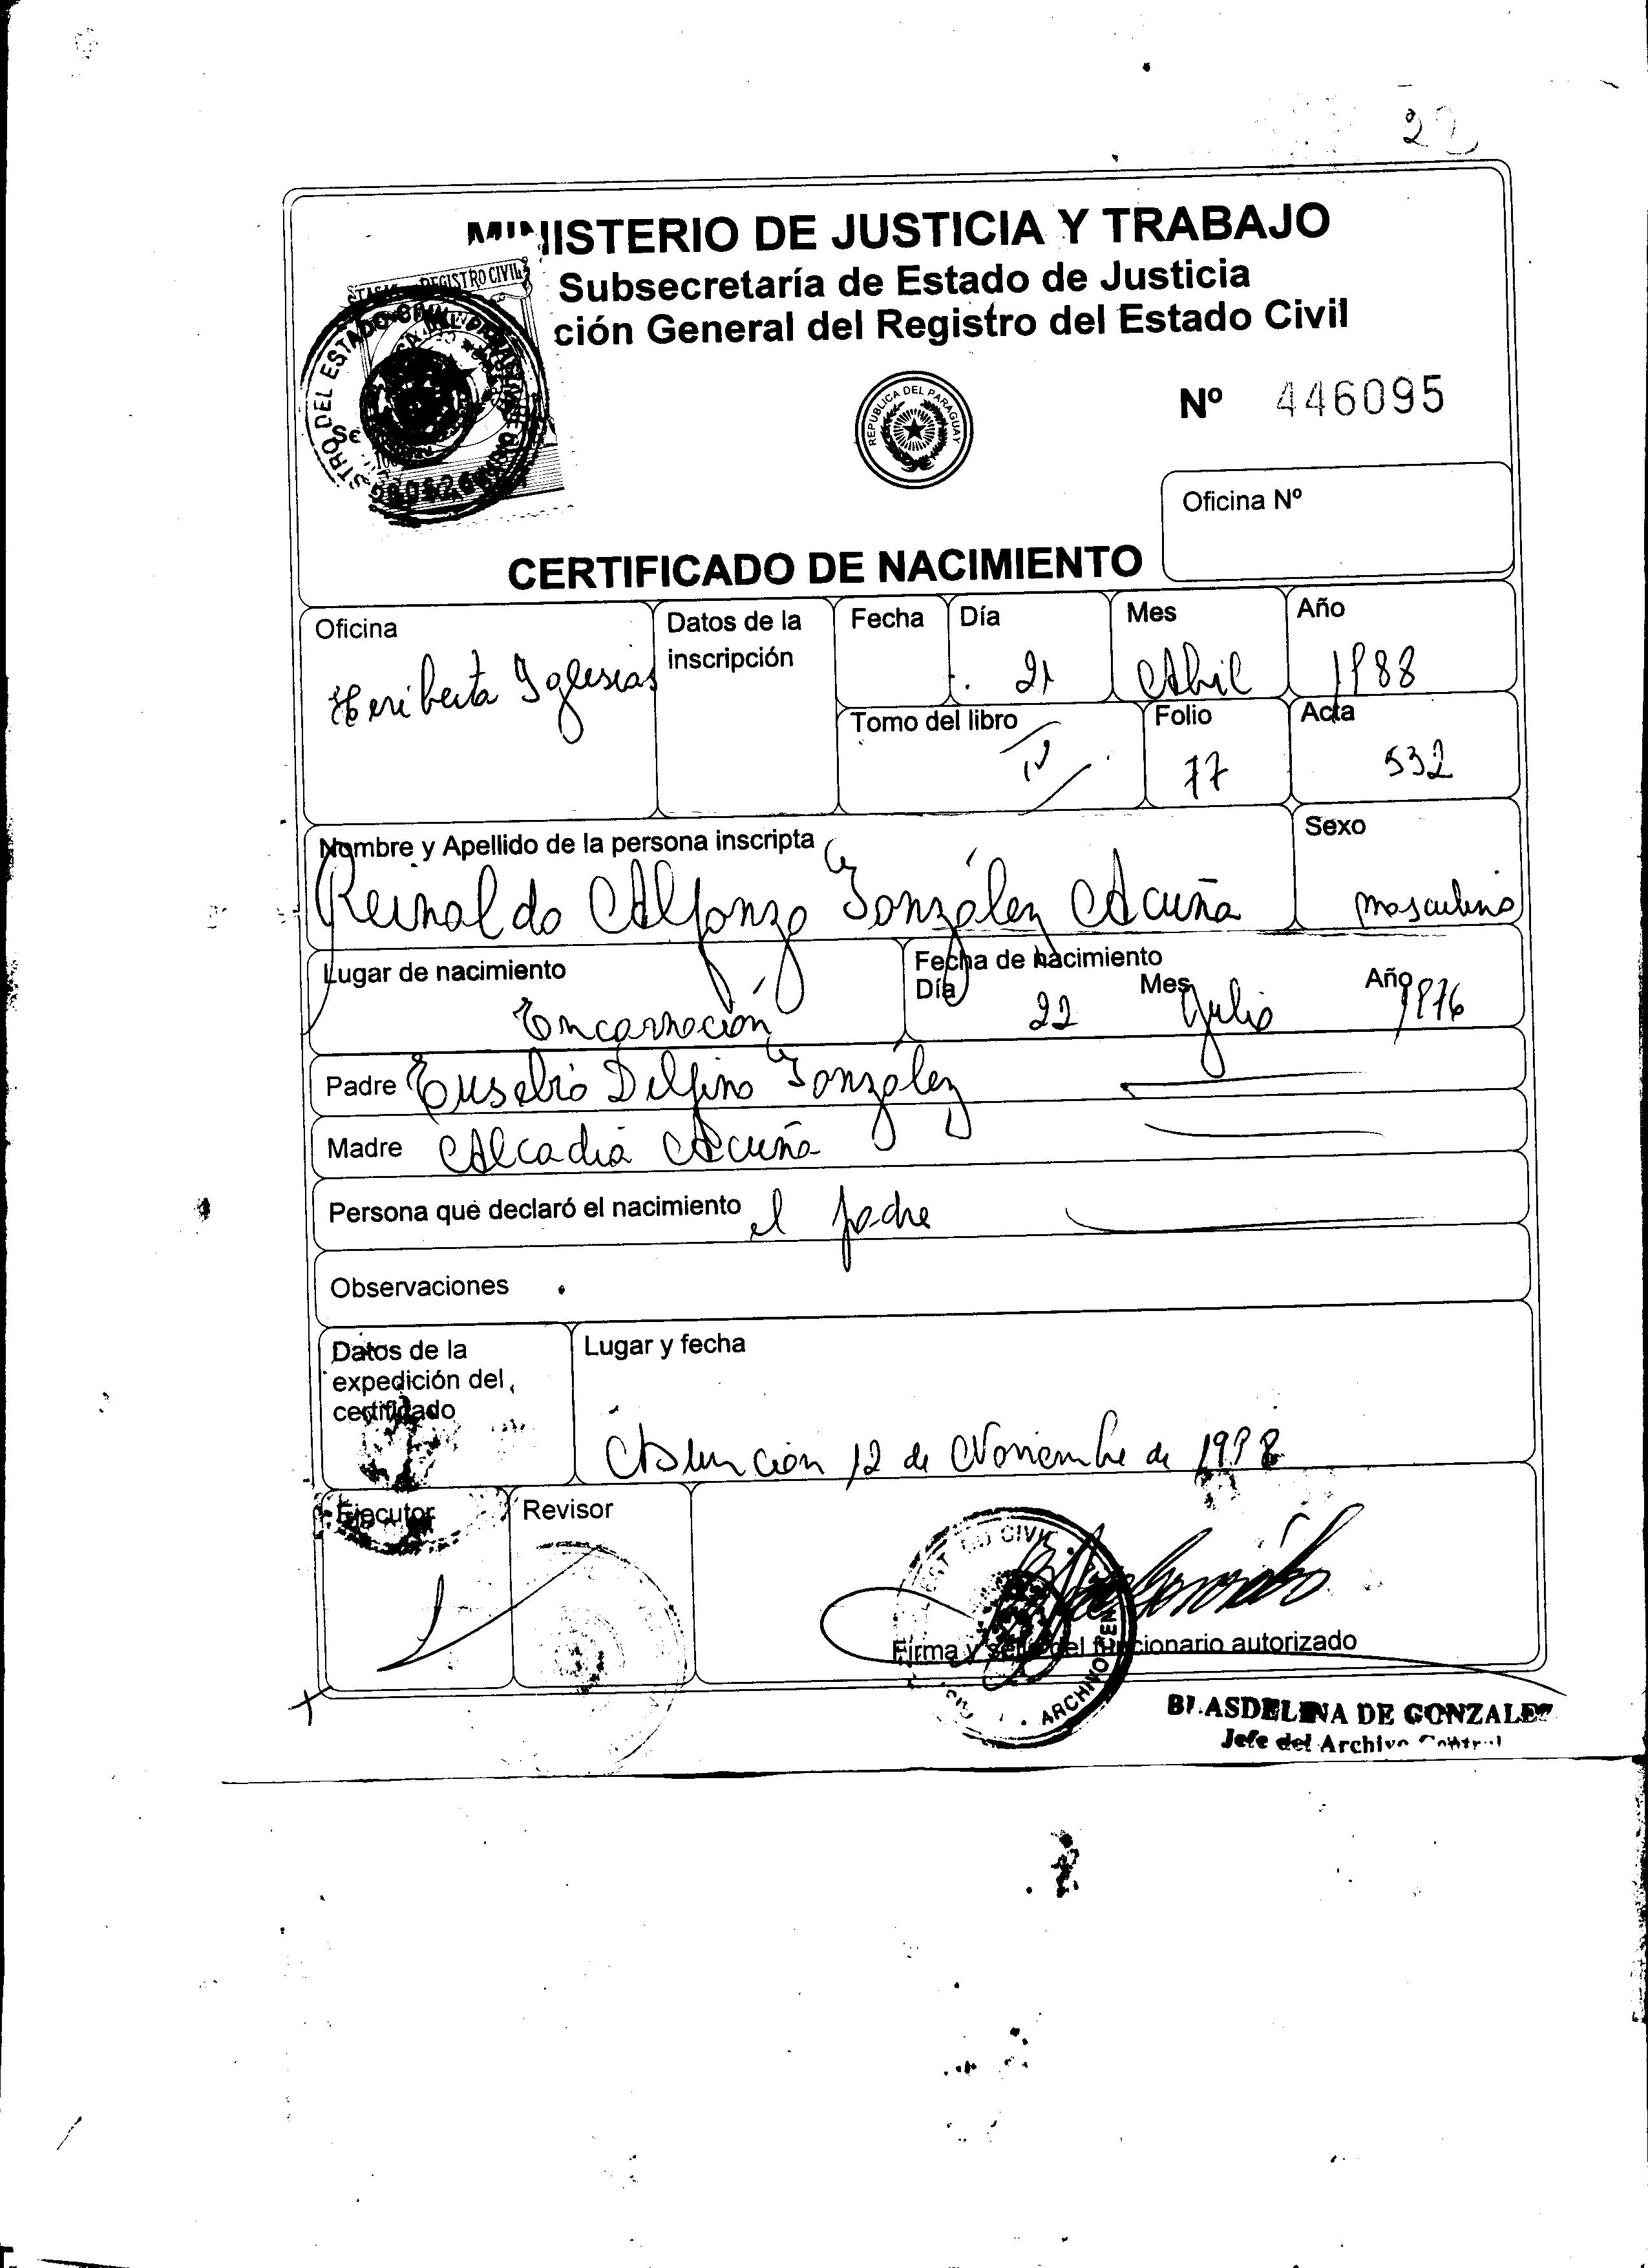 22
MINISTERIO DE JUSTICIA Y TRABAJO
Subsecretaría de Estado de Justicia
ción General del Registro del Estado Civil
REGISTRO CIVIL
STRO DEL ESTADO CIVIL
REPUBLICA DEL PARAGUAY
Nº 446095
Oficina Nº
CERTIFICADO DE NACIMIENTO
Oficina
Heriberta Iglesias
Datos de la
inscripción
Fecha Día 21 Mes Abril Año 1988
Tomo del libro IV Folio 77 Acta 532
Nombre y Apellido de la persona inscripta
Reinaldo Alfonzo González Acuña
Sexo
masculino
Lugar de nacimiento
Encarnación
Fecha de nacimiento
Día 22 Mes Julio Año 1976
Padre Eusebio Delfino González
Madre Alcadia Acuña
Persona que declaró el nacimiento el padre
Observaciones
Datos de la
expedición del
certificado
Lugar y fecha
Asunción 12 de Noviembre de 1998
Ejecutor
Revisor
CIVIL
ARCHIVO
Firma y sello del funcionario autorizado
BLASDELINA DE GONZALEZ
Jefe del Archivo Central